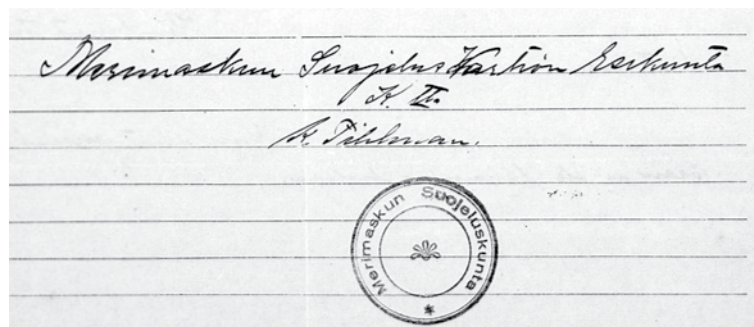 Merimaskun Suojelus Kartiön Esikunta
K. Tihlman.
Merimaskun Suojeluskunta